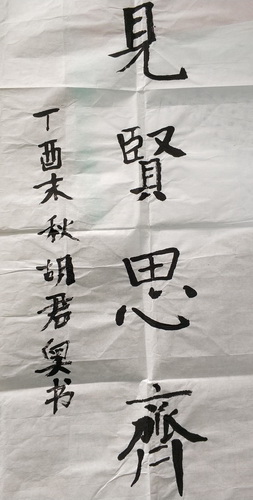 見賢思齊
丁酉末秋胡君奥书